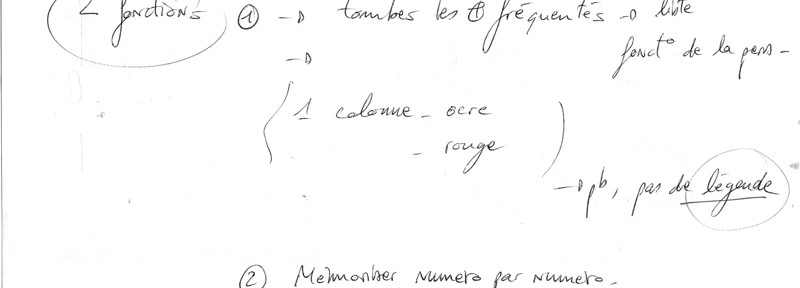 2 fonctions ① → tombes les ⊕ fréquentés → liste
fonct° de la pers -
→
1 colonne - ocre
- rouge
→ pb, pas de légende
② Me montrer numero par numero -